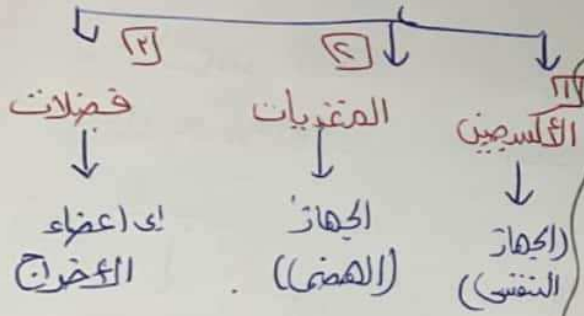 ١
الأكسجين
(الجهاز
التنفسي)
٢
المتغذيات
الجهاز
(الهضمي)
٣
فضلات
إلى أعضاء
الأخراج